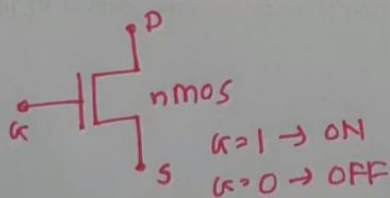 D
nmos
G
S
G=1 → ON
G=0 → OFF